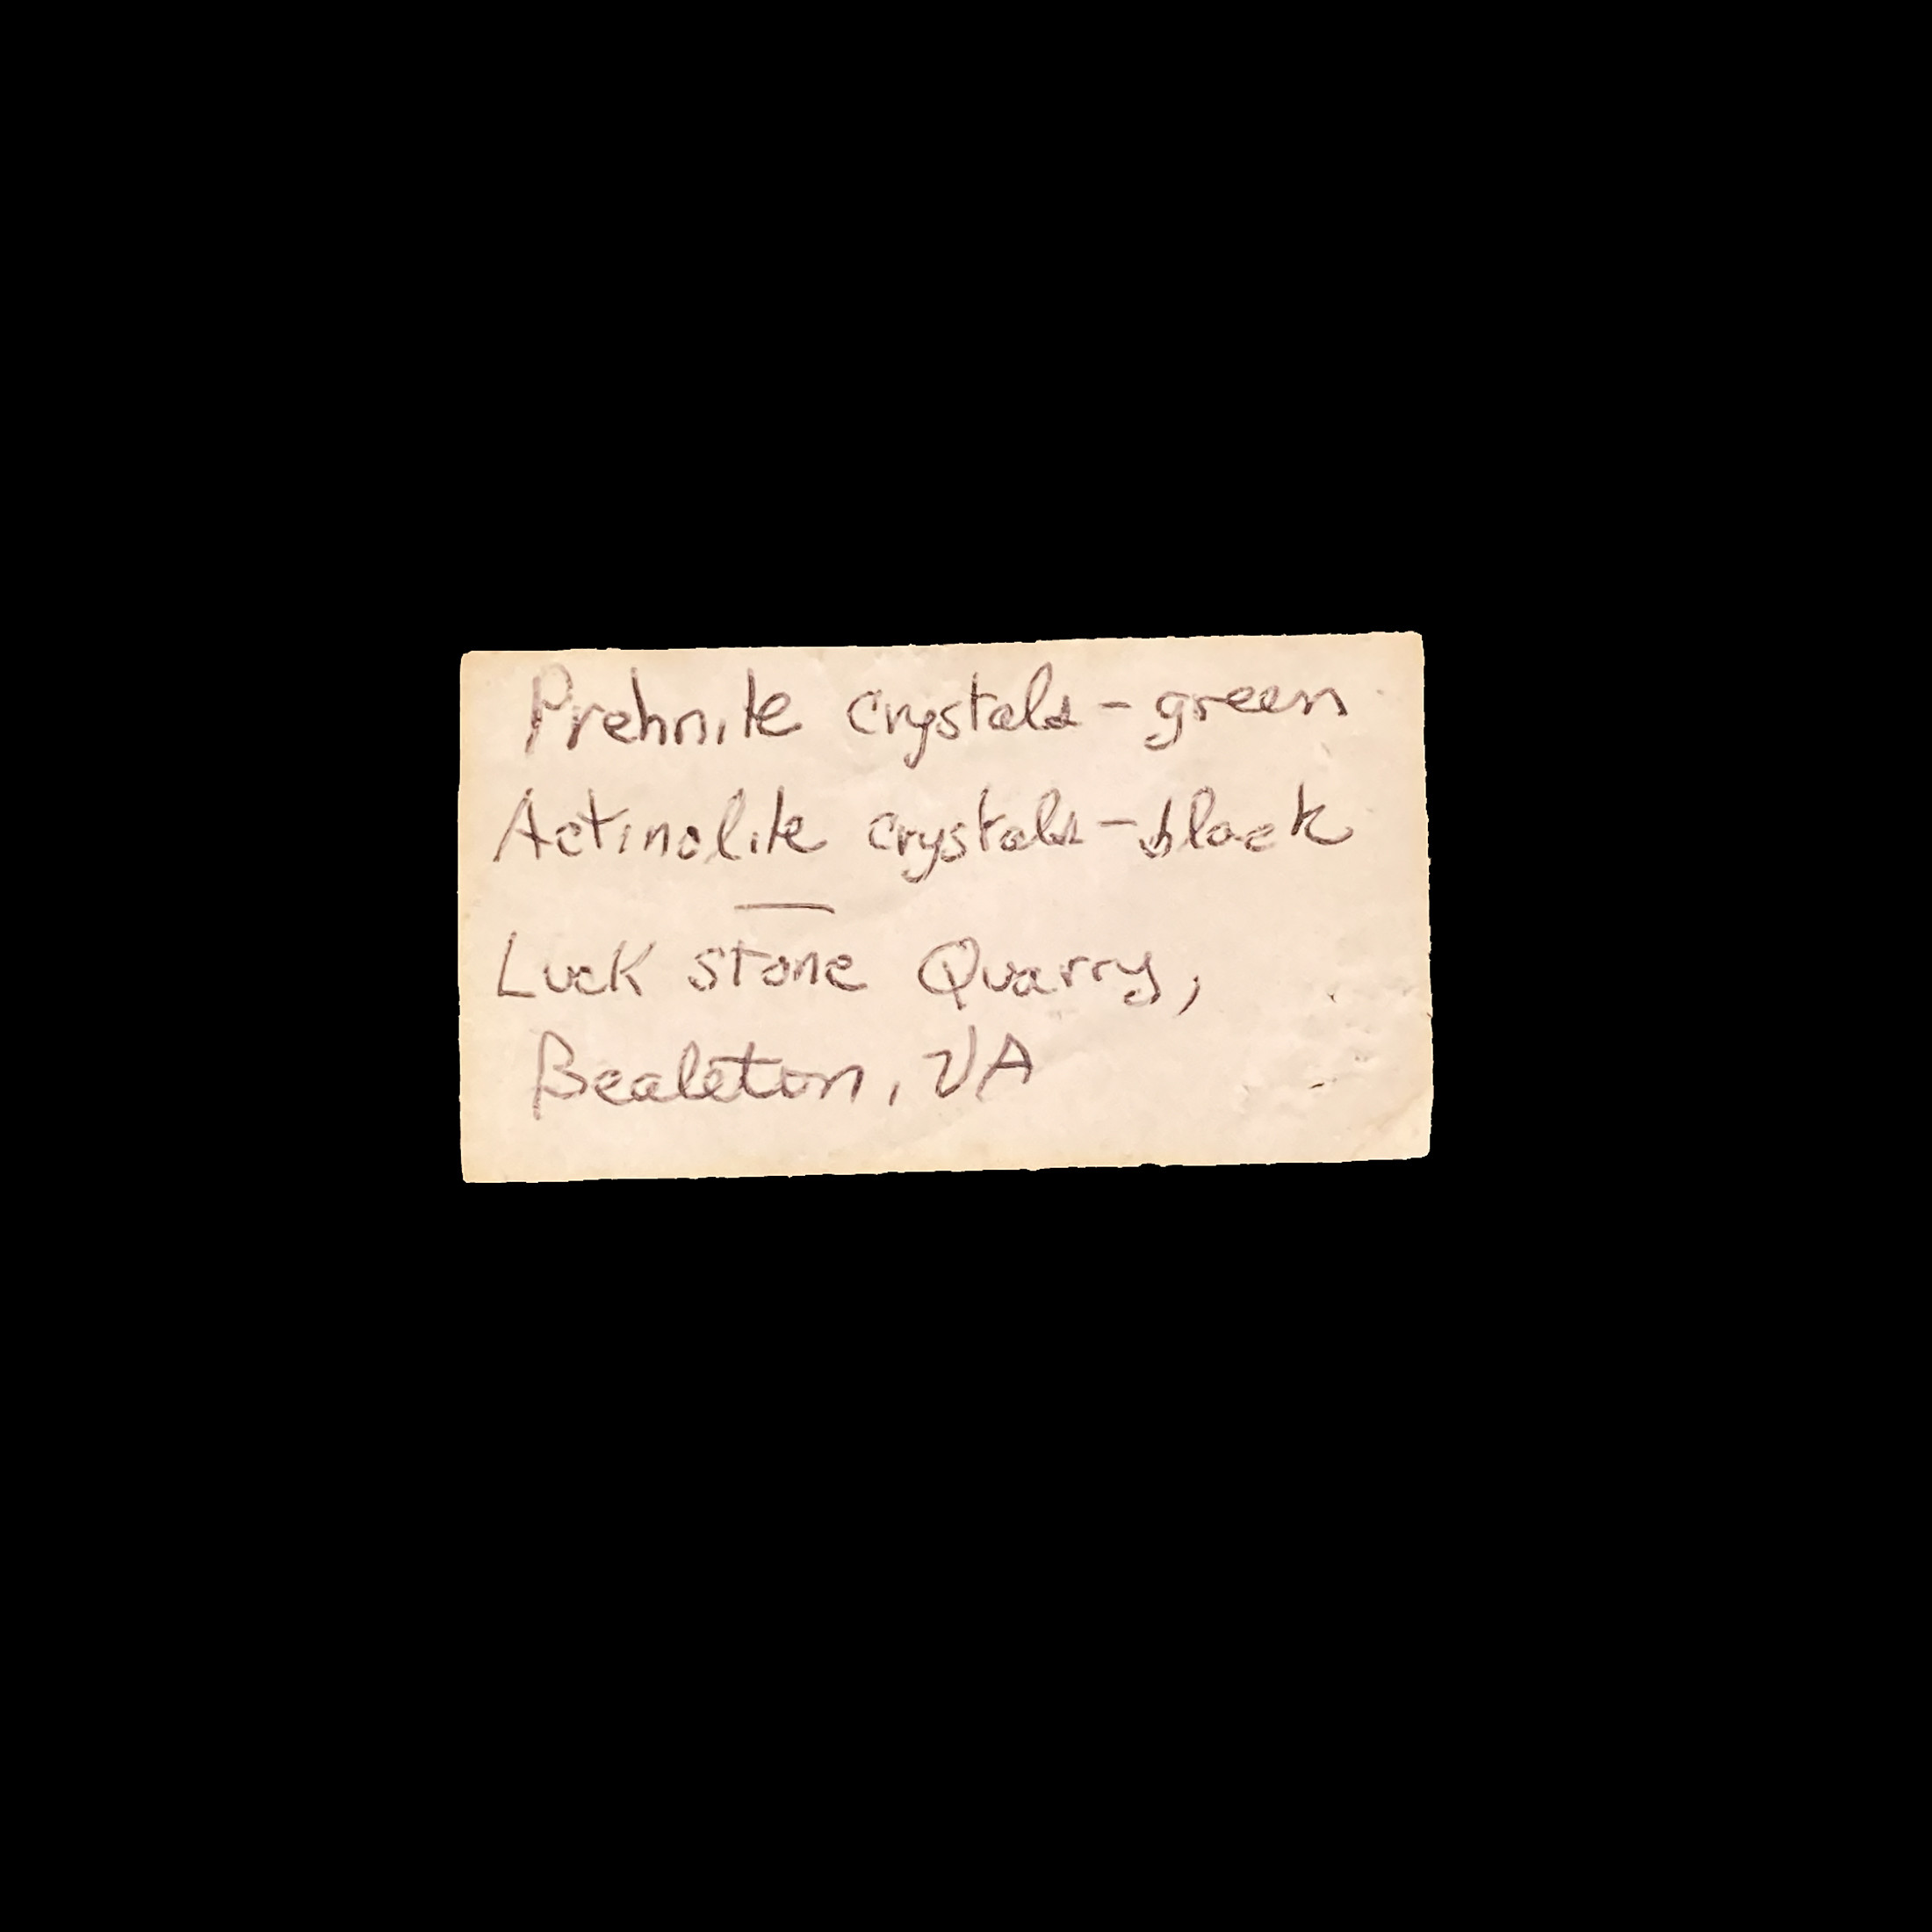 Prehnite crystals - green
Actinolite crystals - black
—
Luck stone Quarry,
Bealeton, VA